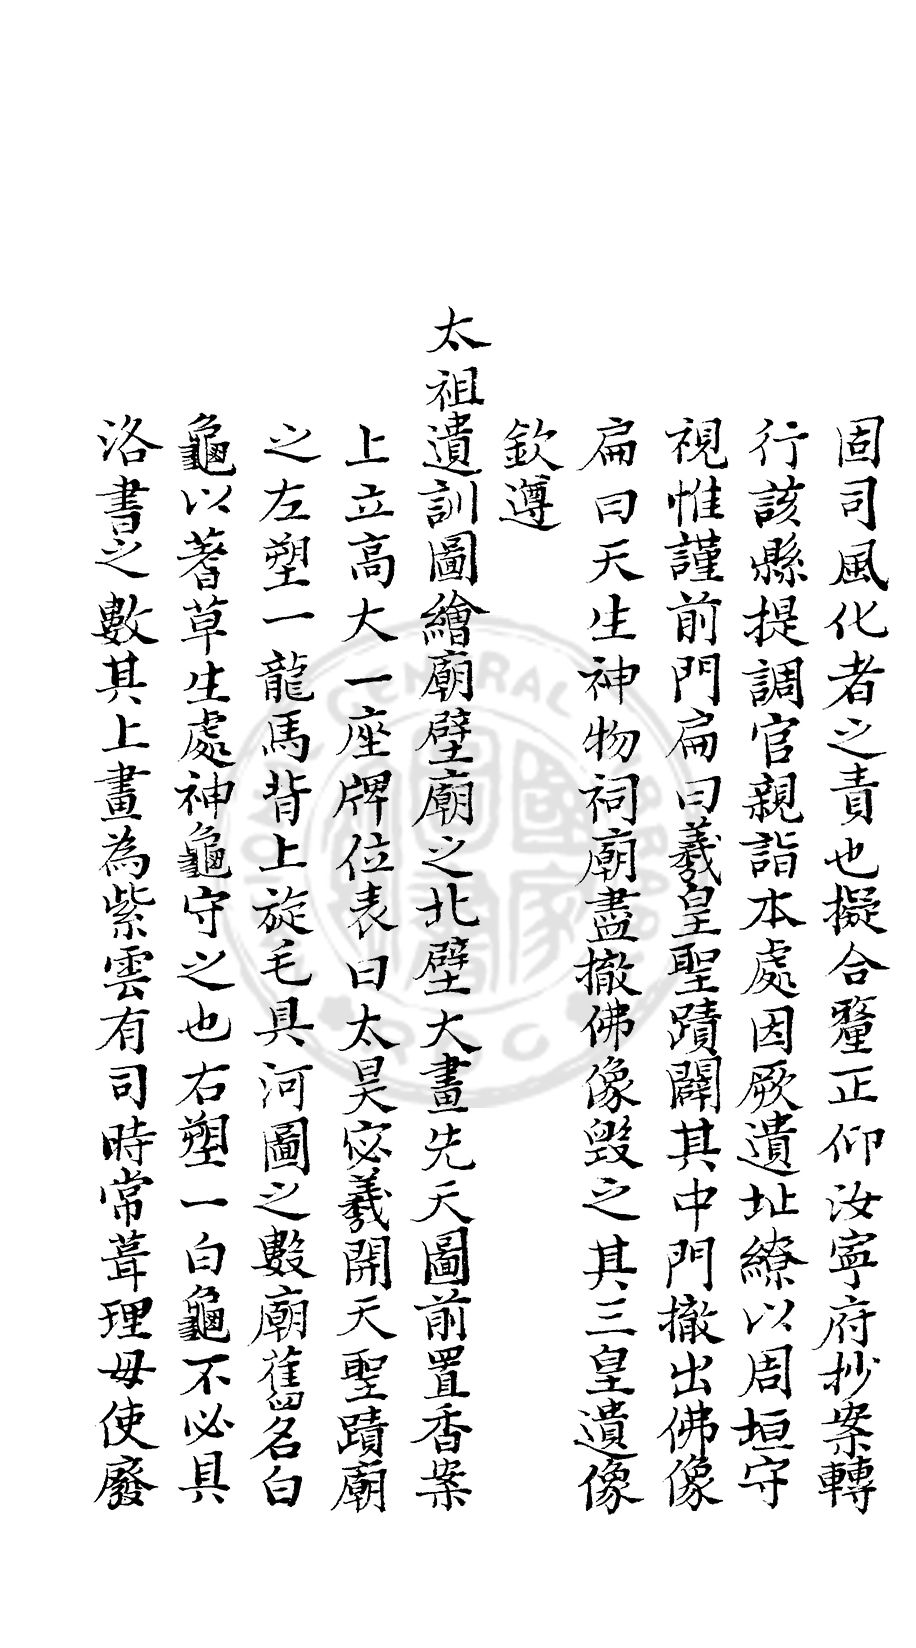 固司風化者之責也擬合釐正仰汝寧府抄案轉
行該縣提調官親詣本處因厥遺址繚以周垣守
視惟謹前門扁曰羲皇聖蹟闢其中門撤出佛像
扁曰天生神物祠廟盡撤佛像毀之其三皇遺像
欽遵
太祖遺訓圖繪廟壁廟之北壁大畫先天圖前置香案
上立高大一座牌位表曰太昊宓羲開天聖蹟廟
之左塑一龍馬背上旋毛具河圖之數廟舊名白
龜以蓍草生處神龜守之也右塑一白龜不必具
洛書之數其上畫為紫雲有司時常葺理毋使廢